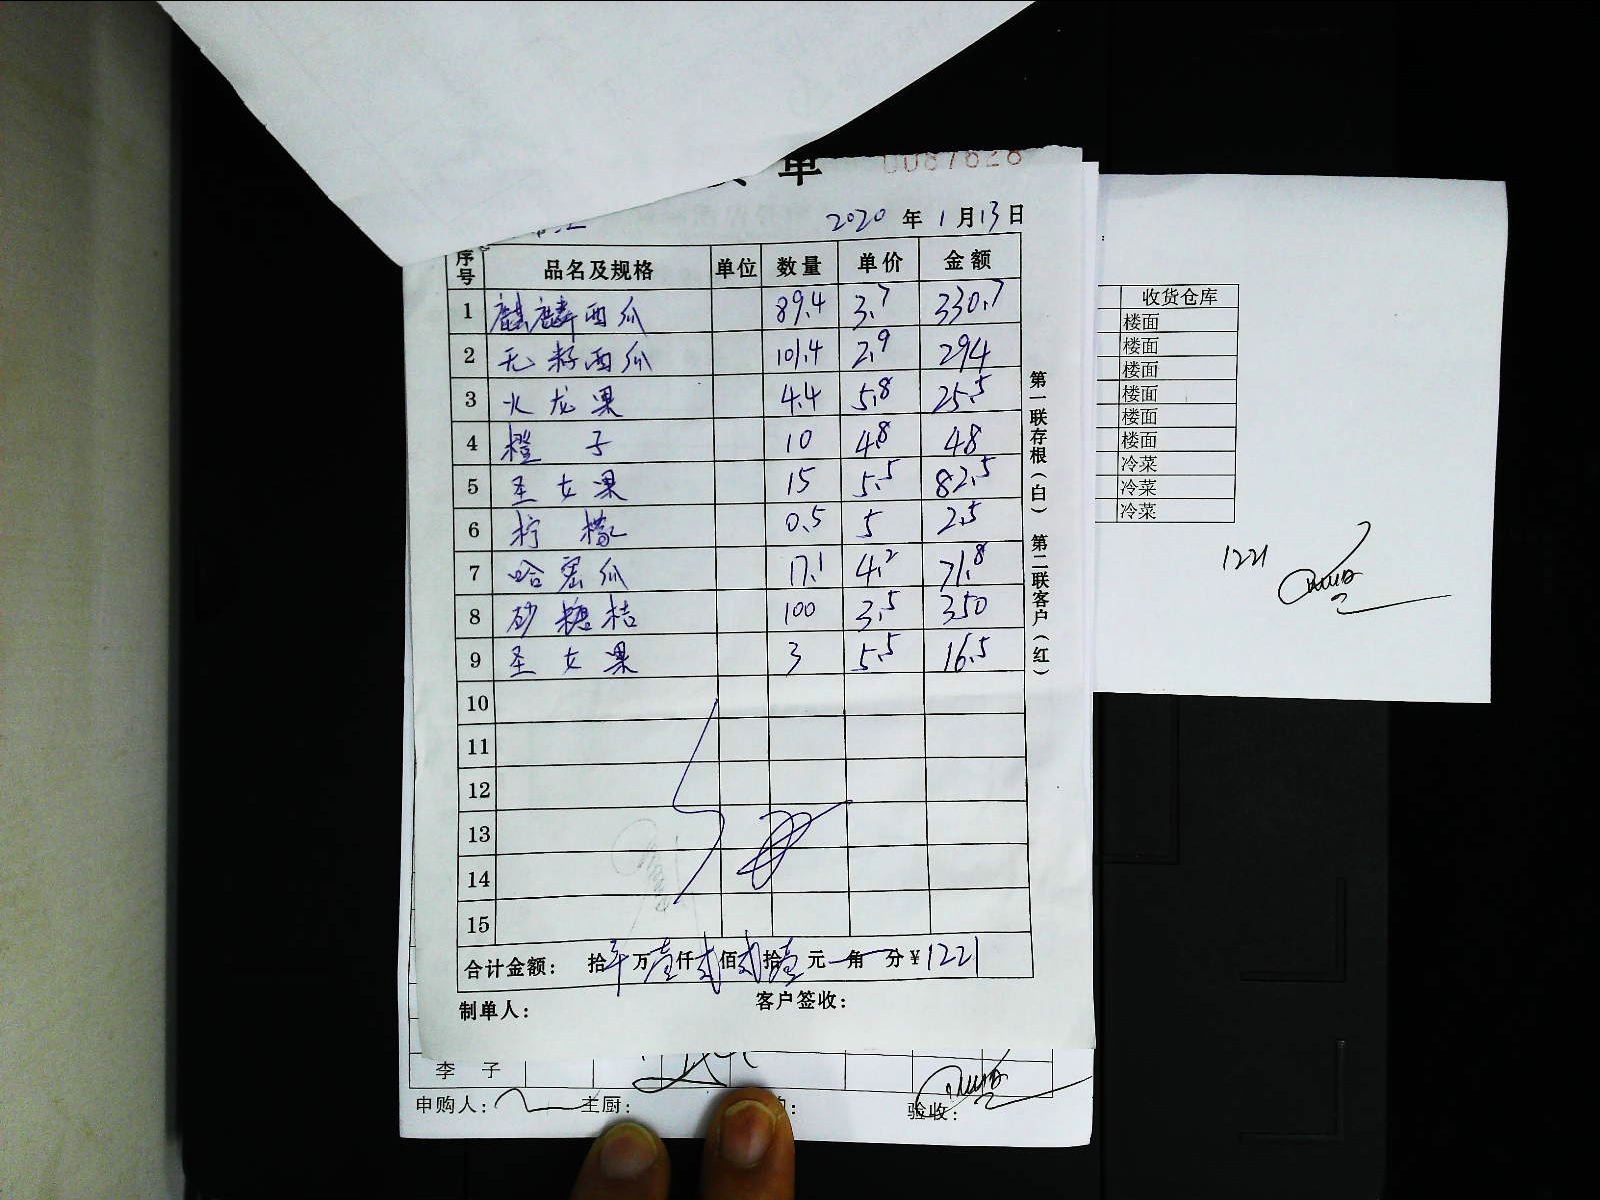 单 0087628
2020 年 1 月 13 日
序号 品名及规格 单位 数量 单价 金额
1 麒麟西瓜 89.4 3.7 330.7
2 无籽西瓜 101.4 2.9 294
3 火龙果 4.4 5.8 25.5
4 橙子 10 4.8 48
5 圣女果 15 5.5 82.5
6 柠檬 0.5 5 2.5
7 哈密瓜 17.1 4.2 71.8
8 砂糖桔 100 3.5 350
9 圣女果 3 5.5 16.5
10
11
12
13
14
15
合计金额： 拾 万壹仟贰佰贰拾壹元 角 分￥1221
制单人： 客户签收：
第一联存根（白） 第二联客户（红）
收货仓库
楼面
楼面
楼面
楼面
楼面
楼面
冷菜
冷菜
冷菜
1221
李子
申购人： 主厨： 验收：